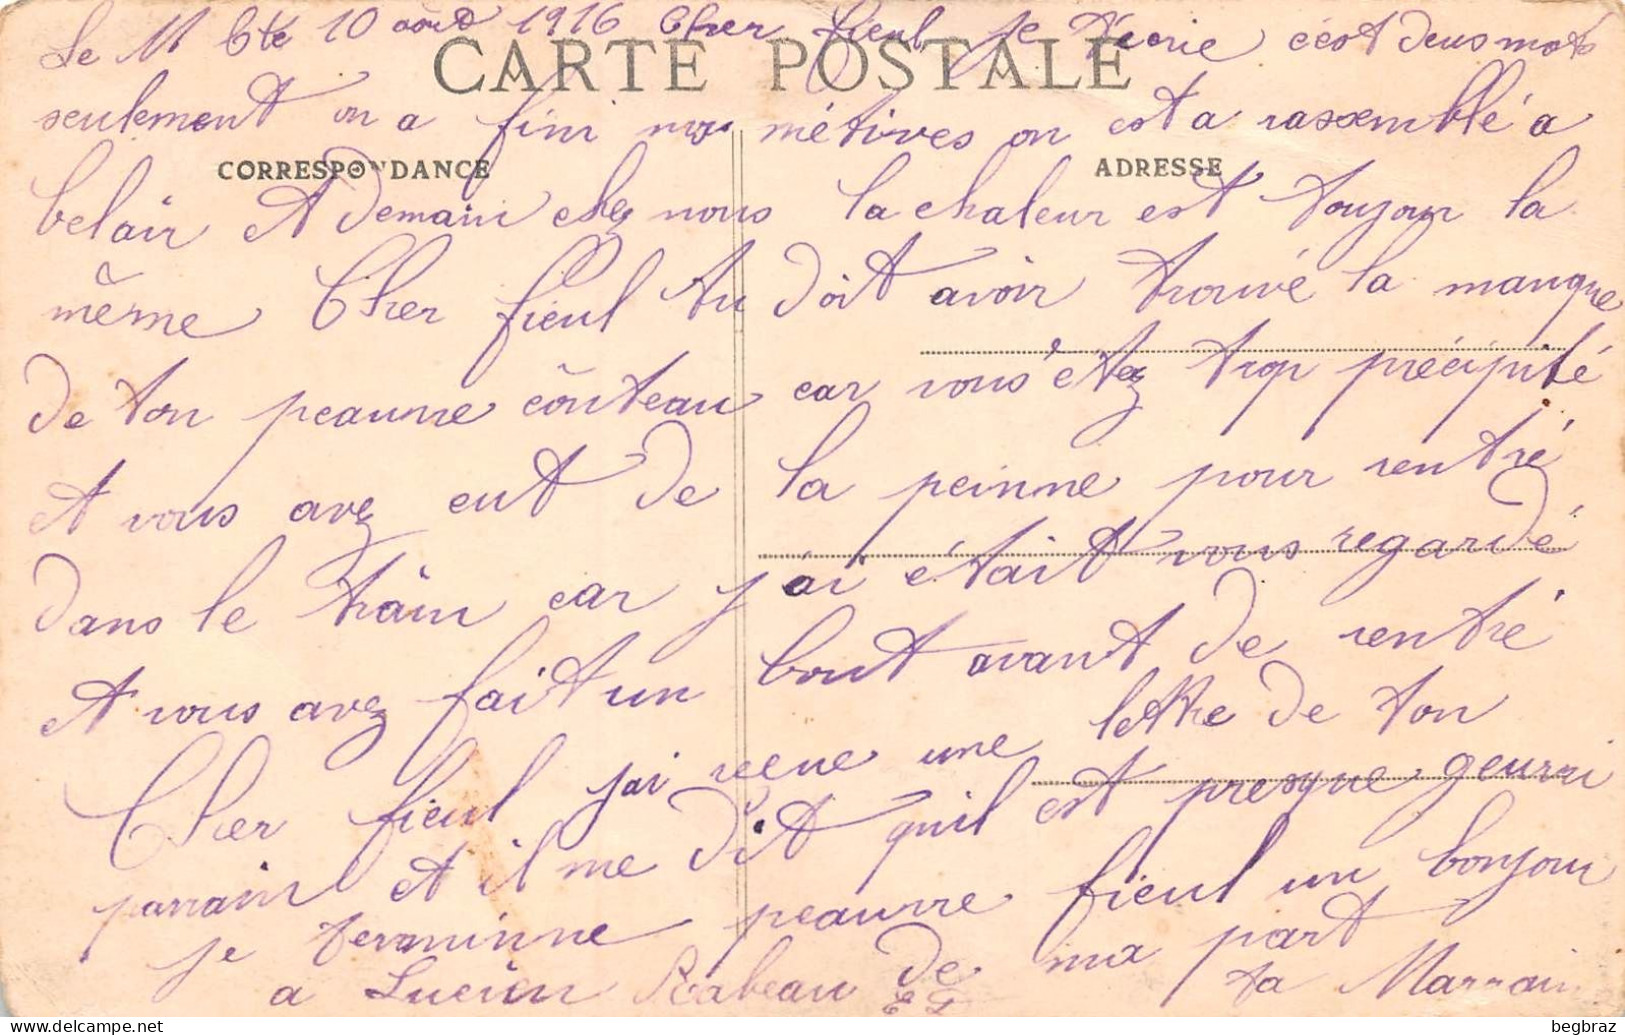 Le 11 bte 10 août 1916 Cher fieul je t'écrie c'est deus mots
CARTE POSTALE
seulement on a fini nos métives on est a rassemblé a
CORRESPONDANCE
ADRESSE
belair et demain chez nous la chaleur est toujour la
même Cher fieul tu doit avoir trouvé la manque
de ton peaurre coûteau car vous étez trop précipité
et vous avez eut de la peinne pour rentré
dans le train car j'ai était vous regardé
et vous avez fait un bout avant de rentré
Cher fieul j'ai recue une lettre de ton
parrain et il me dit qu'il est presque geurri
je terminne peaurre fieul un bonjour
a Lucien Rabeau de ma part
ta Marrain
begbraz